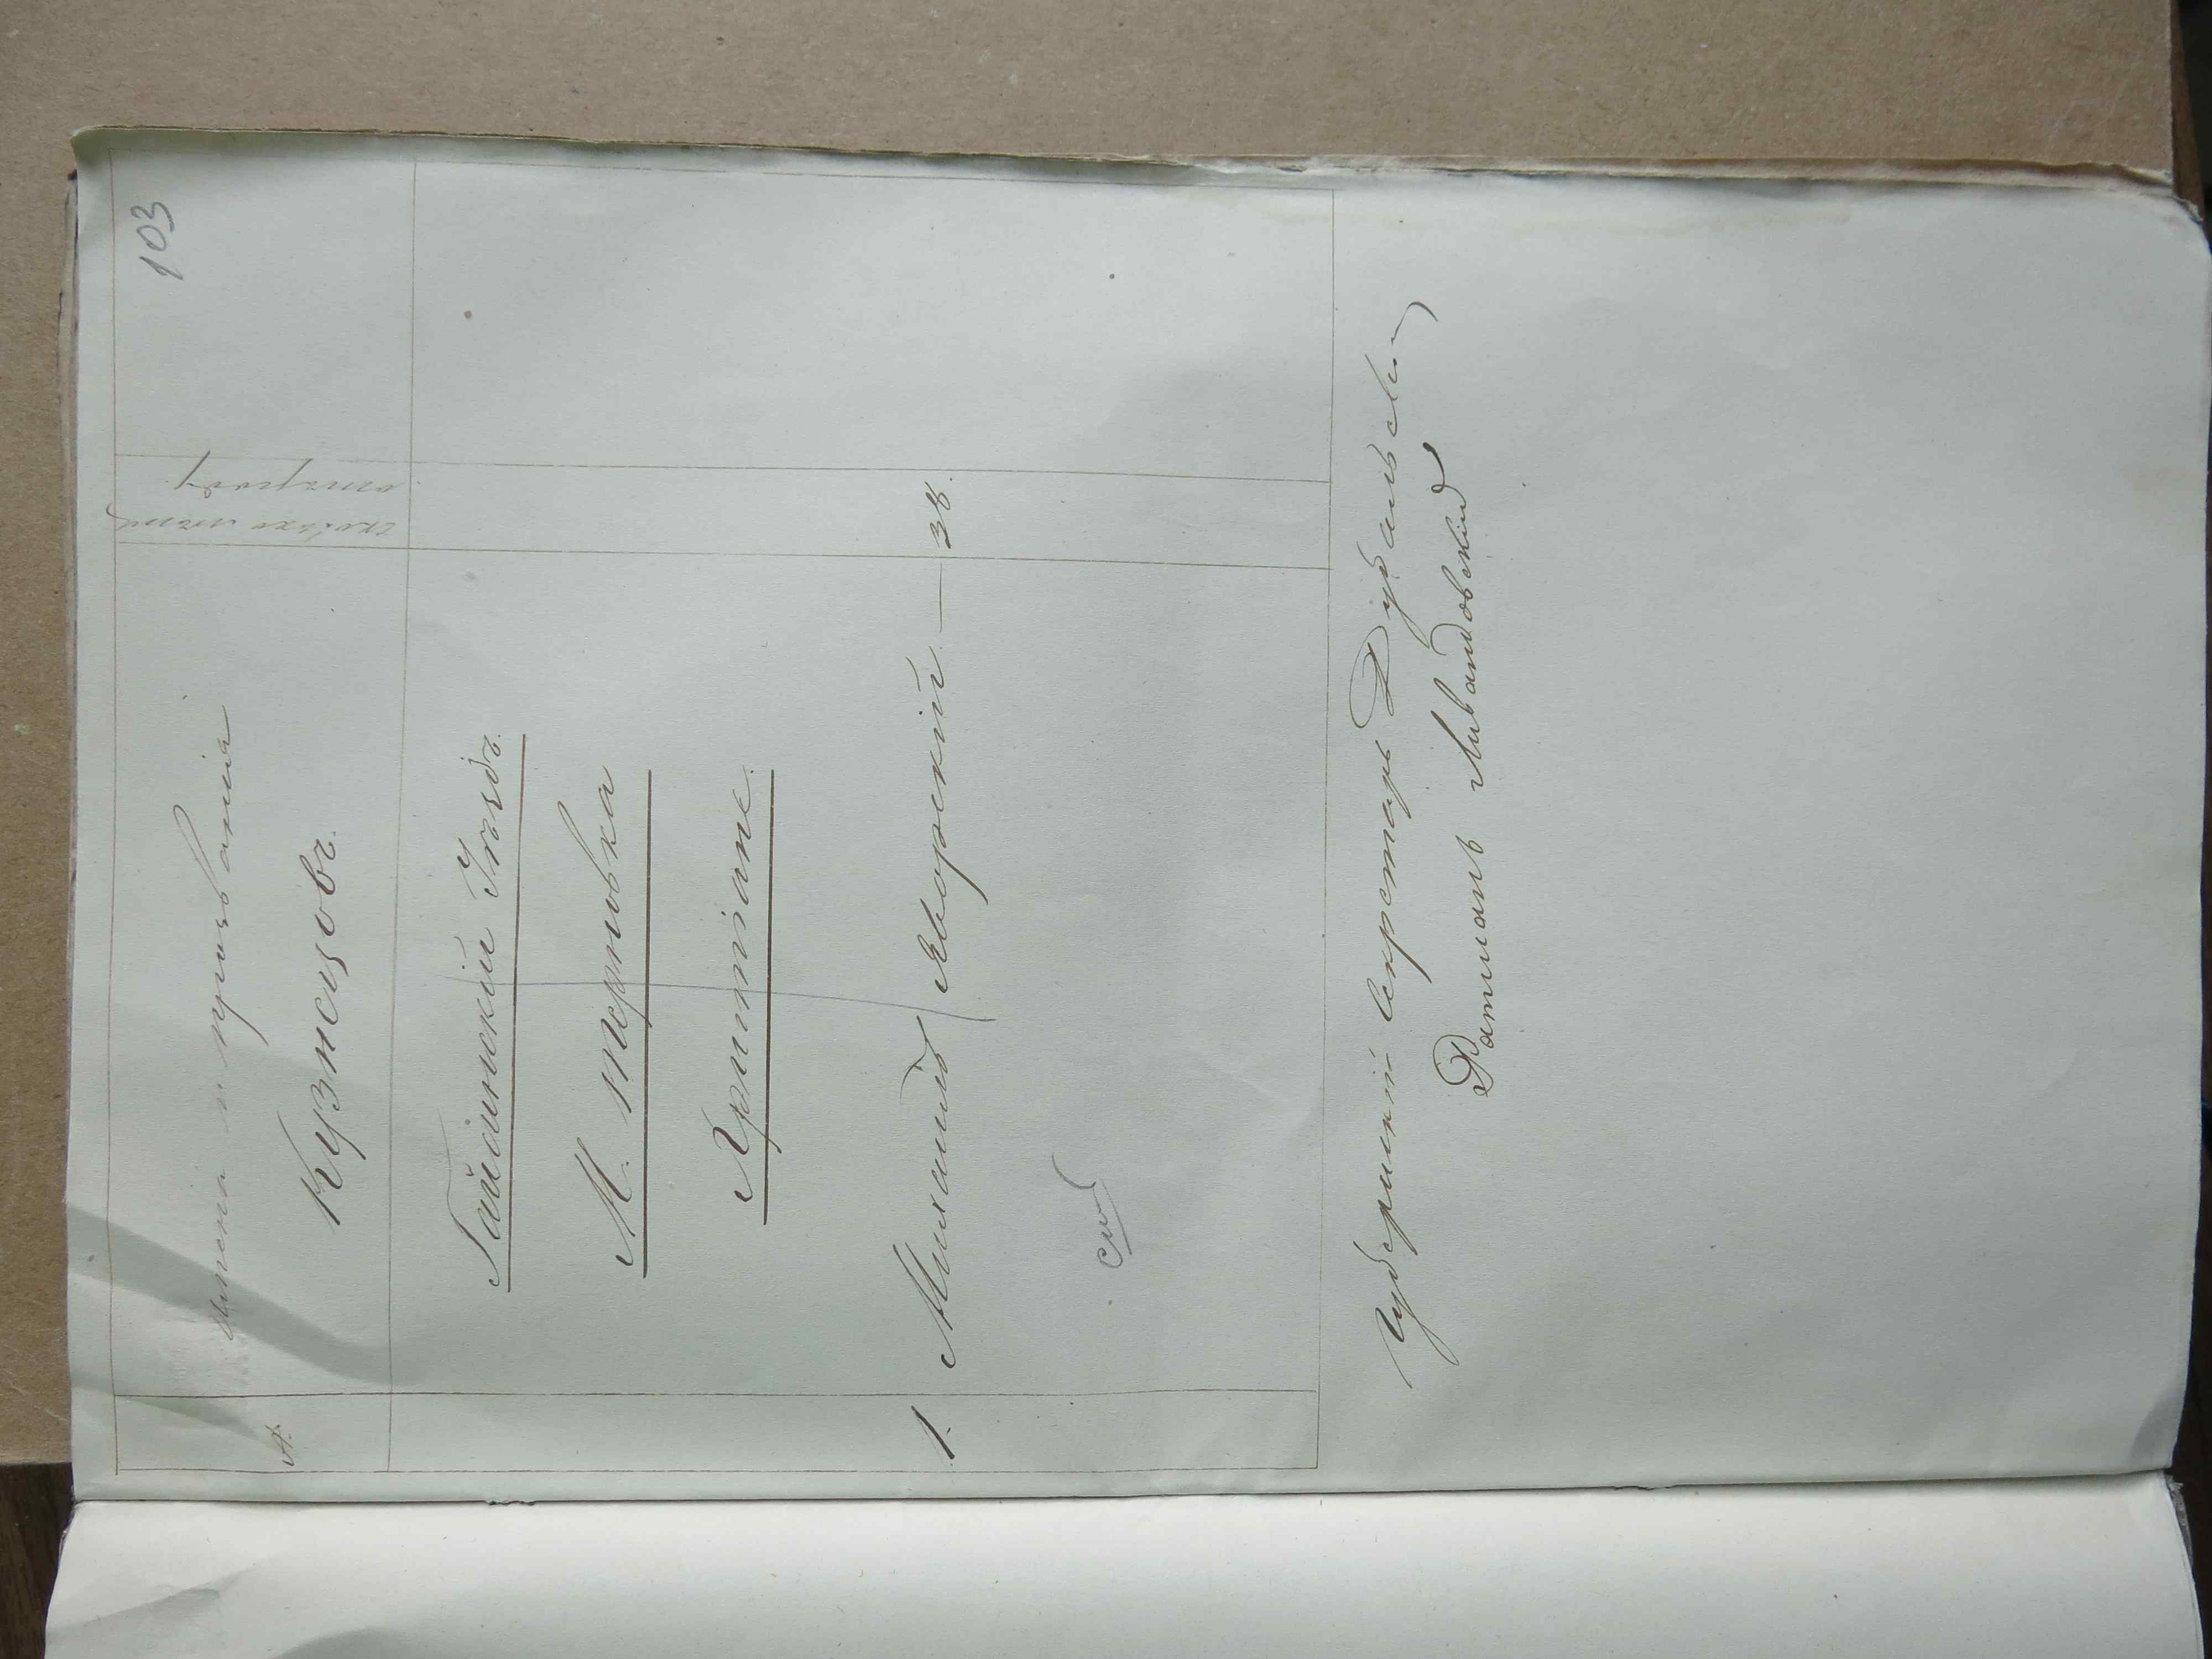 103
№
Имена и прозвания
Кузнецовъ.
сколько летъ
отъ роду
Гайсинскій Уѣздъ.
М. Терновка
Христіане.
1. Михаилъ Яворскій — 38.
Губернскій Секретарь
Ратманъ Левандовскій